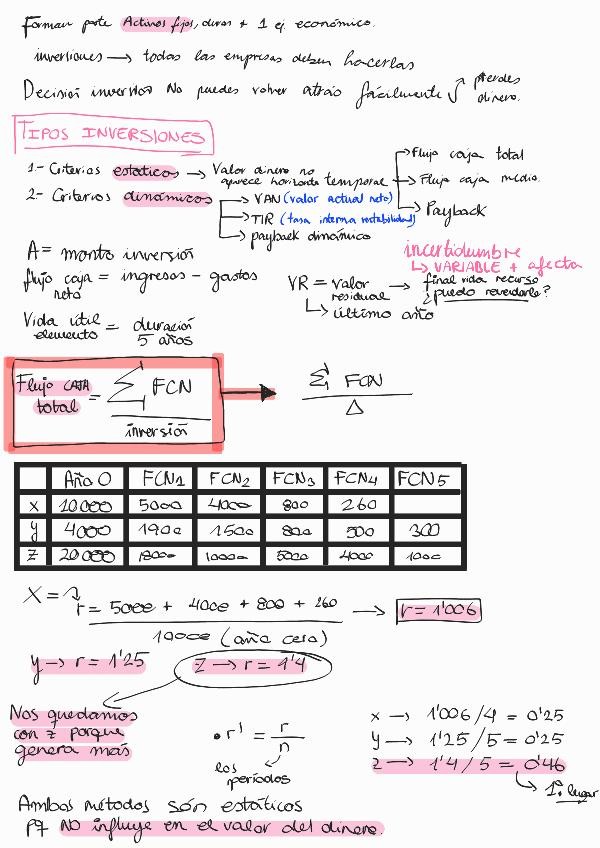 Forman parte Activos fijos, duran + 1 ej. económico.
inversiones → todas las empresas deben hacerlas
Decisión inversión No puedes volver atrás fácilmente → pierdes dinero.
TIPOS INVERSIONES
1- Criterios estáticos → Valor dinero no aparece horizonte temporal
→ Flujo caja total
→ Flujo caja medio.
→ Payback
2- Criterios dinámicos
→ VAN (valor actual neto)
→ TIR (tasa interna rentabilidad)
→ payback dinámico
A = monto inversión
flujo caja neto = ingresos - gastos
Vida útil elemento = duración 5 años
incertidumbre
↳ VARIABLE + afecta
VR = valor residual → final vida recurso ¿puedo revenderlo?
↳ último año
Flujo CAJA total = Σ FCN / inversión → Σ FCN / A
Año 0 FCN1 FCN2 FCN3 FCN4 FCN5
x 10.000 5000 4000 800 260
y 4000 1900 1500 800 500 300
z 20.000 18000 10000 5000 4000 1000
X = r = 5000 + 4000 + 800 + 260 / 10000 (año cero) → r = 1'006
y → r = 1'25
z → r = 1'4
Nos quedamos
con z porque
genera más
• r' = r / n
los periodos
x → 1'006/4 = 0'25
y → 1'25/5 = 0'25
z → 1'4/5 = 0'46
↳ 1º. lugar
Ambos métodos son estáticos
pq NO influye en el valor del dinero.